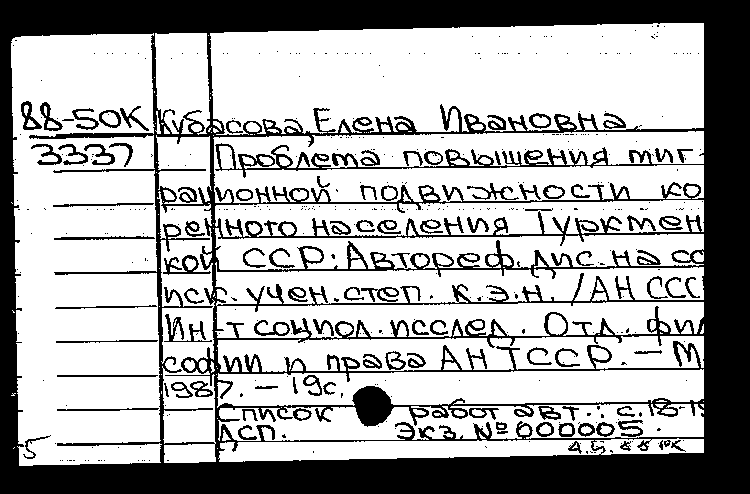 88-50К Кубасова, Елена Ивановна
3337 Проблема повышения миг-
рационной подвижности ко
ренного населения Туркмен
кой ССР: Автореф. дис. на со
иск. учен. степ. к.э.н. /АН ССС
Ин-т социол. исслед. Отд. фил
софии и права АН ТССР. — М
1987. — 19с.
Список работ авт.: с. 18-19
ДСП. Экз. № 000005.
5